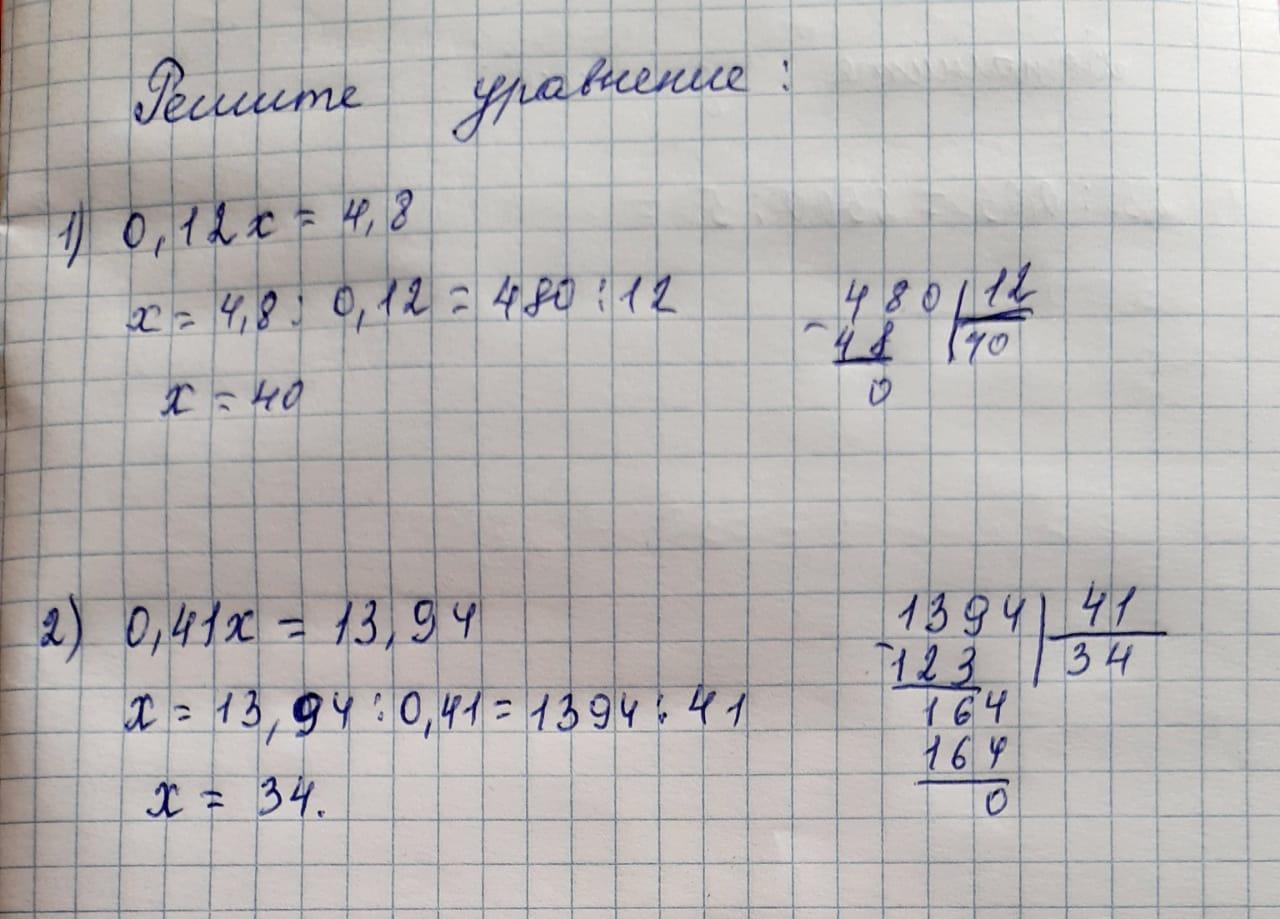 Решите уравнение:
1) 0,12x = 4,8
x = 4,8 : 0,12 = 480 : 12
x = 40
480 | 12
- 48 | 40
0
2) 0,41x = 13,94
x = 13,94 : 0,41 = 1394 : 41
x = 34.
1394 | 41
- 123 | 34
164
164
0